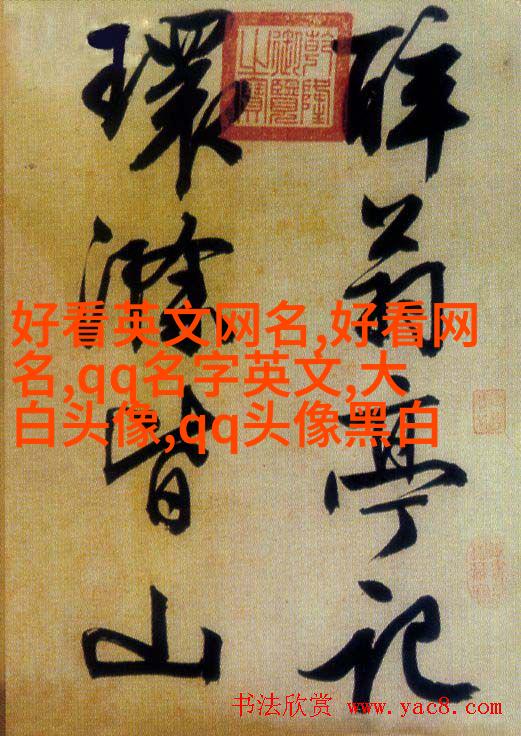 醉翁亭記
環滁皆山
乾隆
御覽
之寶
好看英文网名,好看网
名,qq名字英文,大
白头像,qq头像黑白
书法欣赏 www.yac8.com